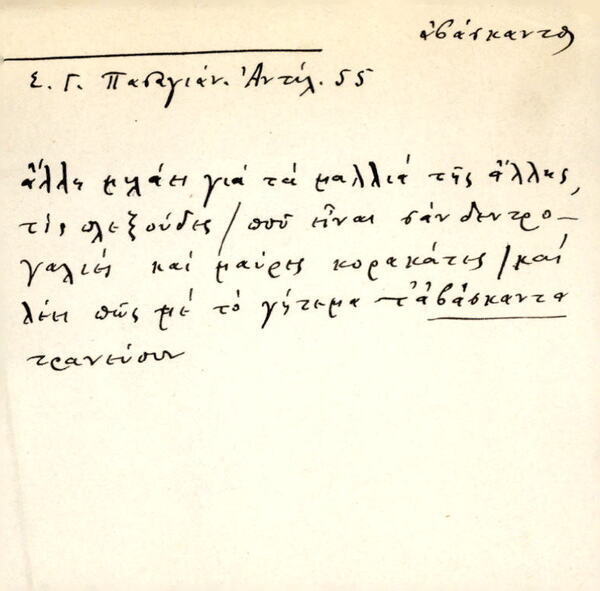 ἀβάσκαντος
Σ. Γ. Παταγιάν. Ἀντίλ. 55
ἄλλη μιλάει γιά τά μαλλιά τῆς ἄλλης,
τίς πλεξοῦδες / ποῦ εἶναι σάν δεντρο-
γαλιές καί μαῦρες κορακάτες / καί
λέει πῶς μέ τό γήτεμα τἀβάσκαντα
τρανεύουν